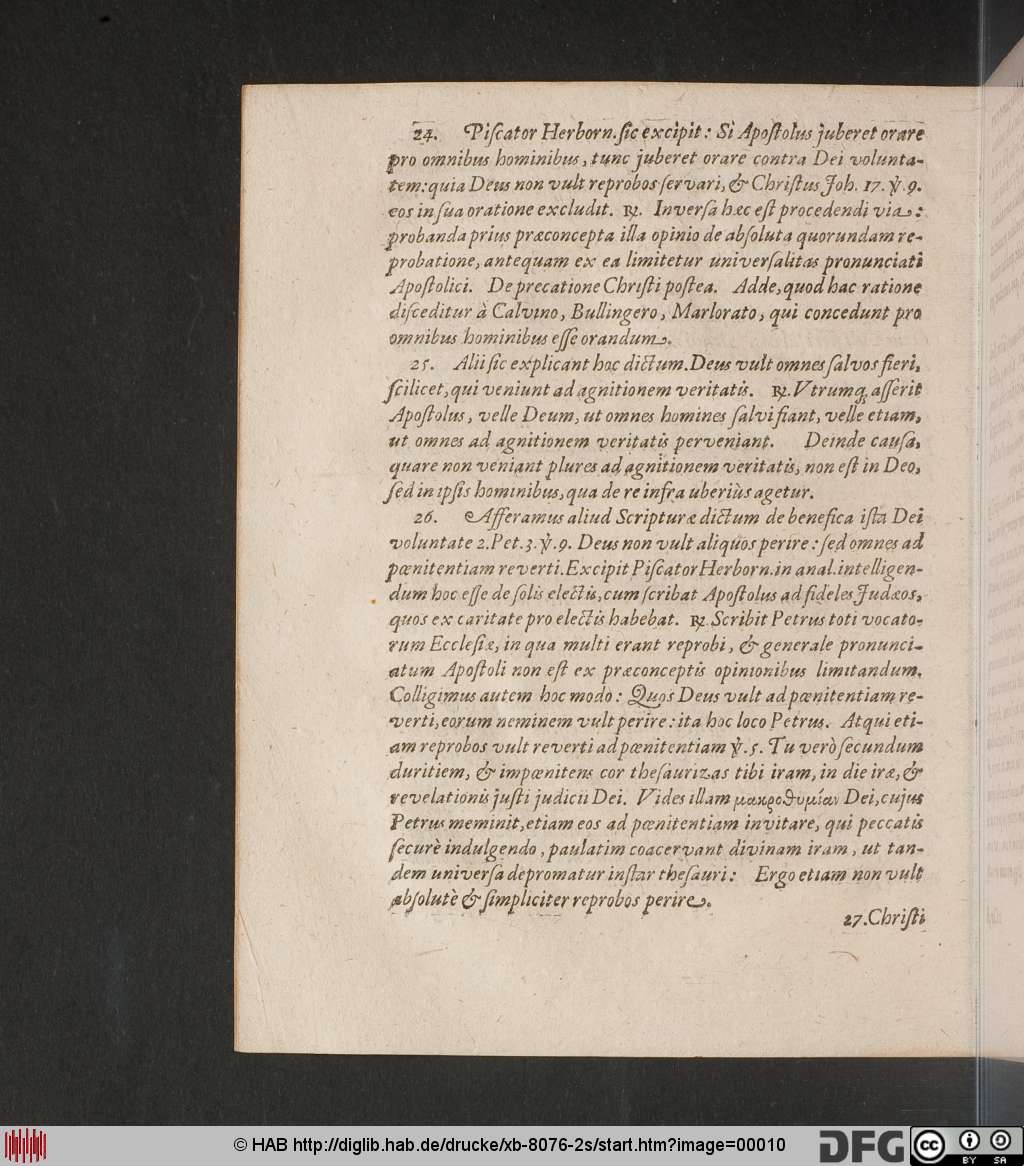 24. Piſcator Herborn. ſic excipit: Si Apoſtolus juberet orare
pro omnibus hominibus, tunc juberet orare contra Dei volunta-
tem: quia Deus non vult reprobos ſervari, & Chriſtus Joh. 17. ℣. 9.
eos in ſua oratione excludit. ℞. Inverſa hæc eſt procedendi via:
probanda prius præconcepta illa opinio de abſoluta quorundam re-
probatione, antequam ex ea limitetur univerſalitas pronunciati
Apoſtolici. De precatione Chriſti poſtea. Adde, quod hac ratione
diſceditur à Calvino, Bullingero, Marlorato, qui concedunt pro
omnibus hominibus eſſe orandum.
25. Alii ſic explicant hoc dictum. Deus vult omnes ſalvos fieri,
ſcilicet, qui veniunt ad agnitionem veritatis. ℞. Vtrumq; aſſerit
Apoſtolus, velle Deum, ut omnes homines ſalvi fiant, velle etiam,
ut omnes ad agnitionem veritatis perveniant. Deinde cauſa,
quare non veniant plures ad agnitionem veritatis, non eſt in Deo,
ſed in ipſis hominibus, qua de re infra uberiùs agetur.
26. Afferamus aliud Scripturæ dictum de benefica iſta Dei
voluntate 2. Pet. 3. ℣. 9. Deus non vult aliquos perire: ſed omnes ad
pœnitentiam reverti. Excipit Piſcator Herborn. in anal. intelligen-
dum hoc eſſe de ſolis electis, cum ſcribat Apoſtolus ad fideles Judæos,
quos ex caritate pro electis habebat. ℞. Scribit Petrus toti vocato-
rum Eccleſiæ, in qua multi erant reprobi, & generale pronunci-
atum Apoſtoli non eſt ex præconceptis opinionibus limitandum.
Colligimus autem hoc modo: Quos Deus vult ad pœnitentiam re-
verti, eorum neminem vult perire: ita hoc loco Petrus. Atqui eti-
am reprobos vult reverti ad pœnitentiam ℣. 5. Tu verò ſecundum
duritiem, & impœnitens cor theſaurizas tibi iram, in die iræ, &
revelationis juſti judicii Dei. Vides illam μακροθυμίαν Dei, cujus
Petrus meminit, etiam eos ad pœnitentiam invitare, qui peccatis
ſecurè indulgendo, paulatim coacervant divinam iram, ut tan-
dem univerſa depromatur inſtar theſauri: Ergo etiam non vult
abſolutè & ſimpliciter reprobos perire.
27. Chriſti
© HAB http://diglib.hab.de/drucke/xb-8076-2s/start.htm?image=00010
DFG
cc BY SA